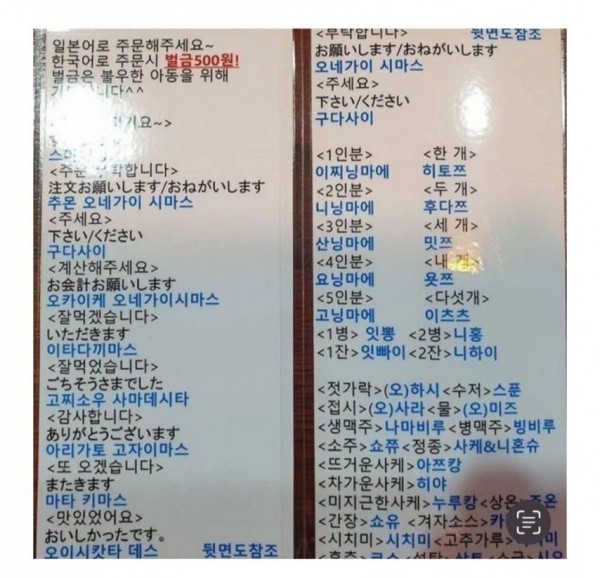 일본어로 주문해주세요~
한국어로 주문시 벌금500원!
벌금은 불우한 아동을 위해
^^
~>
<주문 부탁합니다>
注文お願いします/おねがいします
추몬 오네가이 시마스
<주세요>
下さい/ください
구다사이
<계산해주세요>
お会計お願いします
오카이케 오네가이시마스
<잘먹겠습니다>
いただきます
이타다끼마스
<잘먹었습니다>
ごちそうさまでした
고찌소우 사마데시타
<감사합니다>
ありがとうございます
아리가토 고자이마스
<또 오겠습니다>
またきます
마타 키마스
<맛있었어요>
おいしかったです。
오이시캇타 데스 뒷면도참조
<부탁합니다> 뒷면도참조
お願いします/おねがいします
오네가이 시마스
<주세요>
下さい/ください
구다사이
<1인분> <한 개>
이찌닝마에 히토쯔
<2인분> <두 개>
니닝마에 후다쯔
<3인분> <세 개>
산닝마에 밋쯔
<4인분> <내 개>
요닝마에 욧쯔
<5인분> <다섯개>
고닝마에 이츠츠
<1병> 잇뽕 <2병>니홍
<1잔>잇빠이<2잔>니하이
<젓가락>(오)하시 <수저>스푼
<접시>(오)사라 <물>(오)미즈
<생맥주>나마비루 <병맥주>빙비루
<소주>쇼쮸 <정종>사케&니혼슈
<뜨거운사케>아쯔캉
<차가운사케>히야
<미지근한사케>누루캉<상온>죠온
<간장>쇼유 <겨자소스>카
<시치미>시치미<고추가루>미